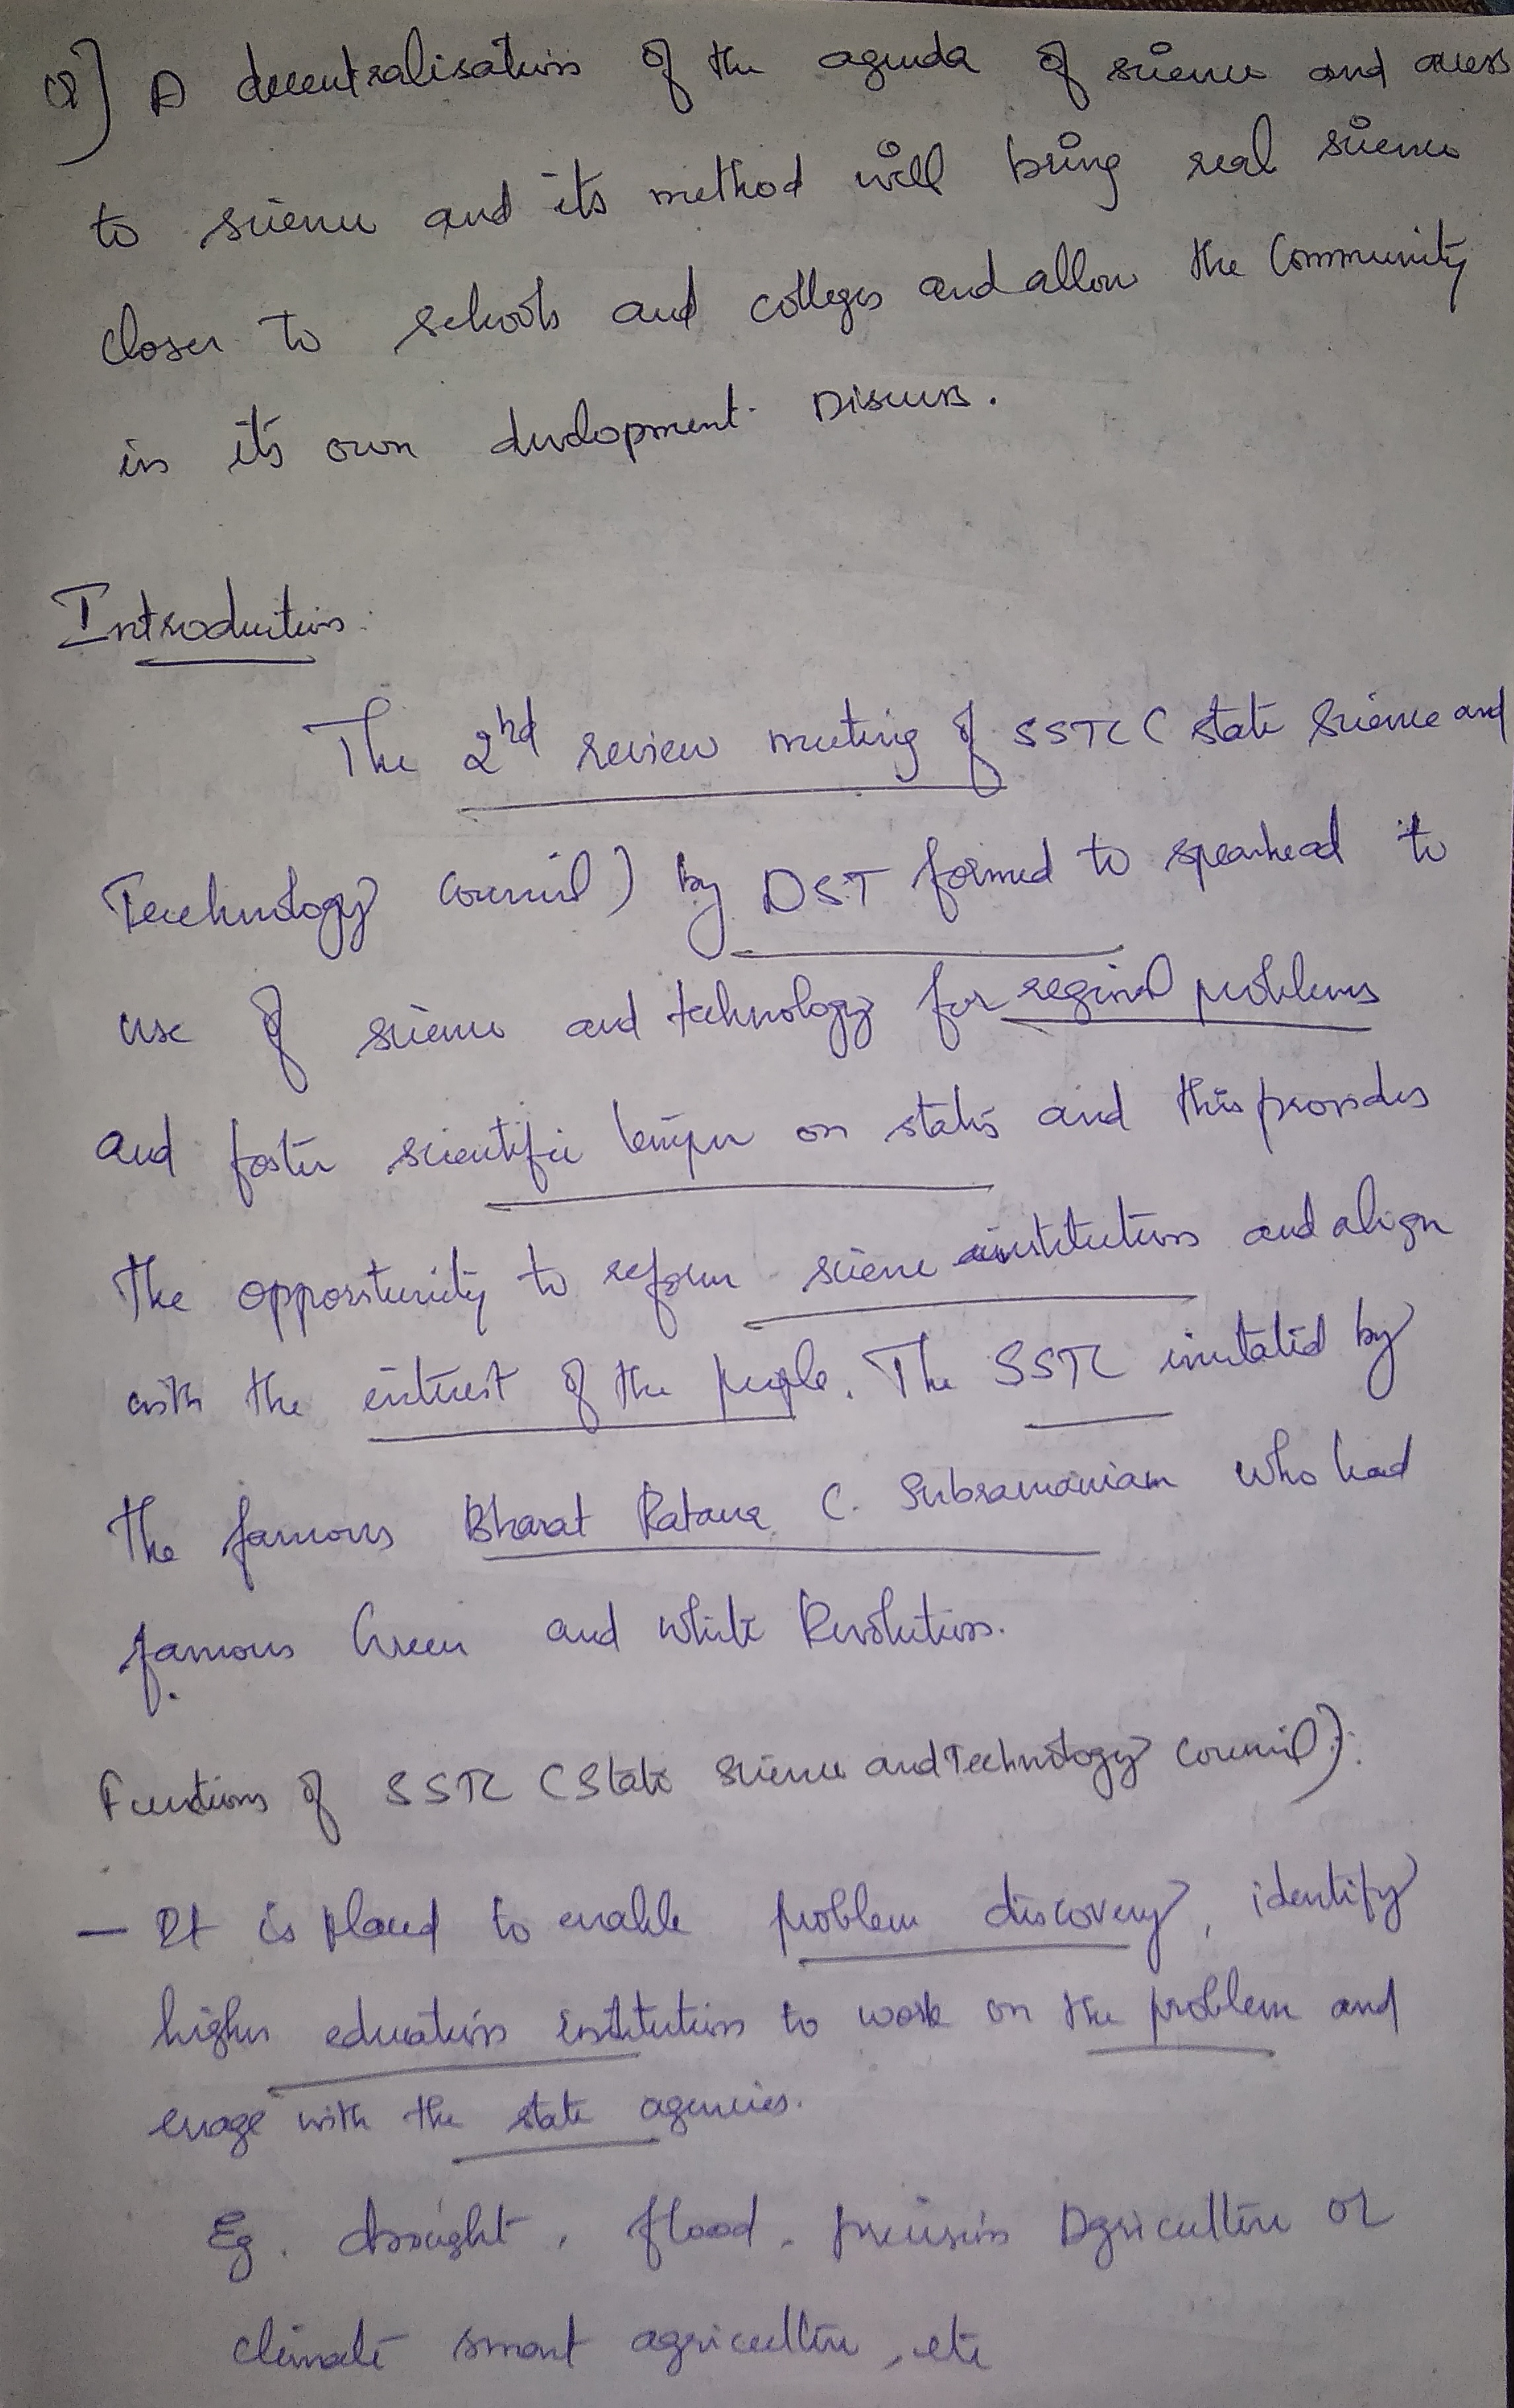 Q] A decentralisation of the agenda of science and access
to science and its method will bring real science
closer to schools and colleges and allow the Community
in its own development. Discuss.
Introduction:
The 2nd review meeting of SSTC ( state Science and
Technology Council) by DST formed to spearhead to
use of science and technology for reginal problems
and foster scientific temper on states and this provides
The opportunity to reform science institutions and align
with the interest of the people. The SSTC initatid by
The famous Bharat Ratana C. Subramaniam who lead
famous Green and White Revolution.
Functions of SSTC (State Science and Technology Council):
— It is placed to enable problem discovery, identify
higher education institution to work on the problem and
enage with the state agencies.
Eg. drought, flood, precision Agriculture or
climate smart agriculture, etc